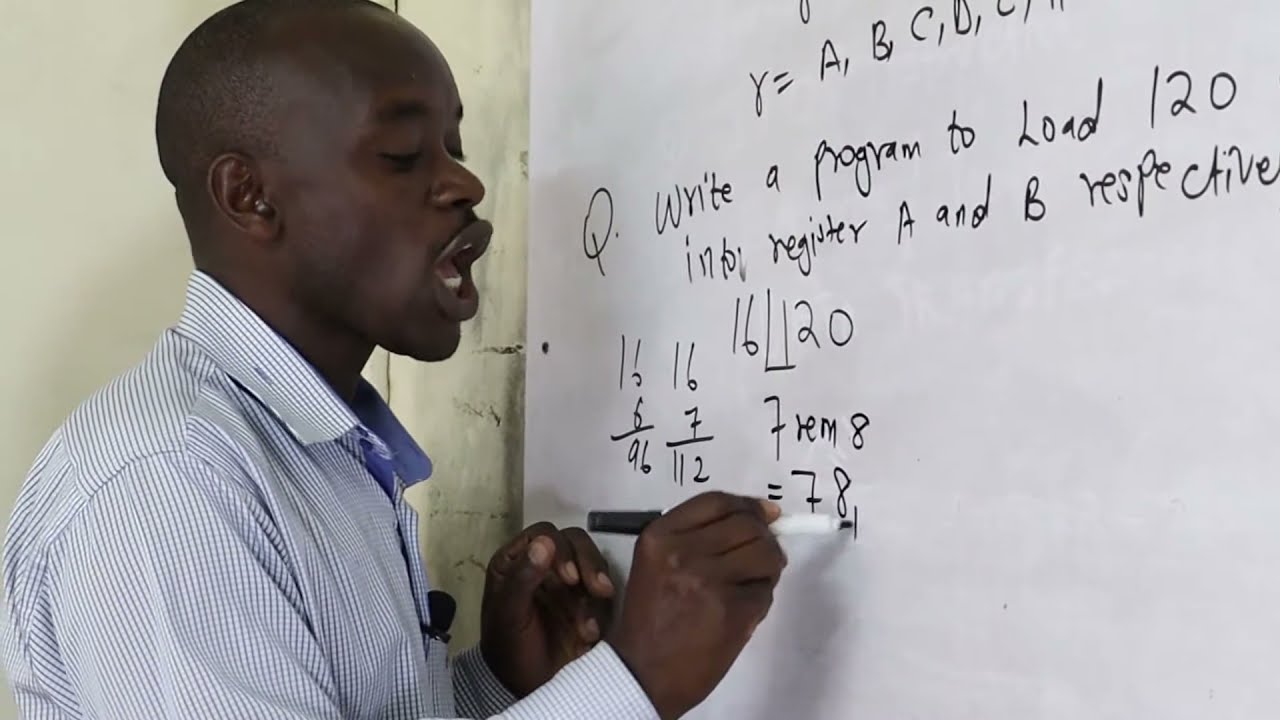 r = A, B, C, D, E, H
Q. Write a program to Load 120
into register A and B respective
16 120
16 16
6 7
96 112
7 rem 8
= 78